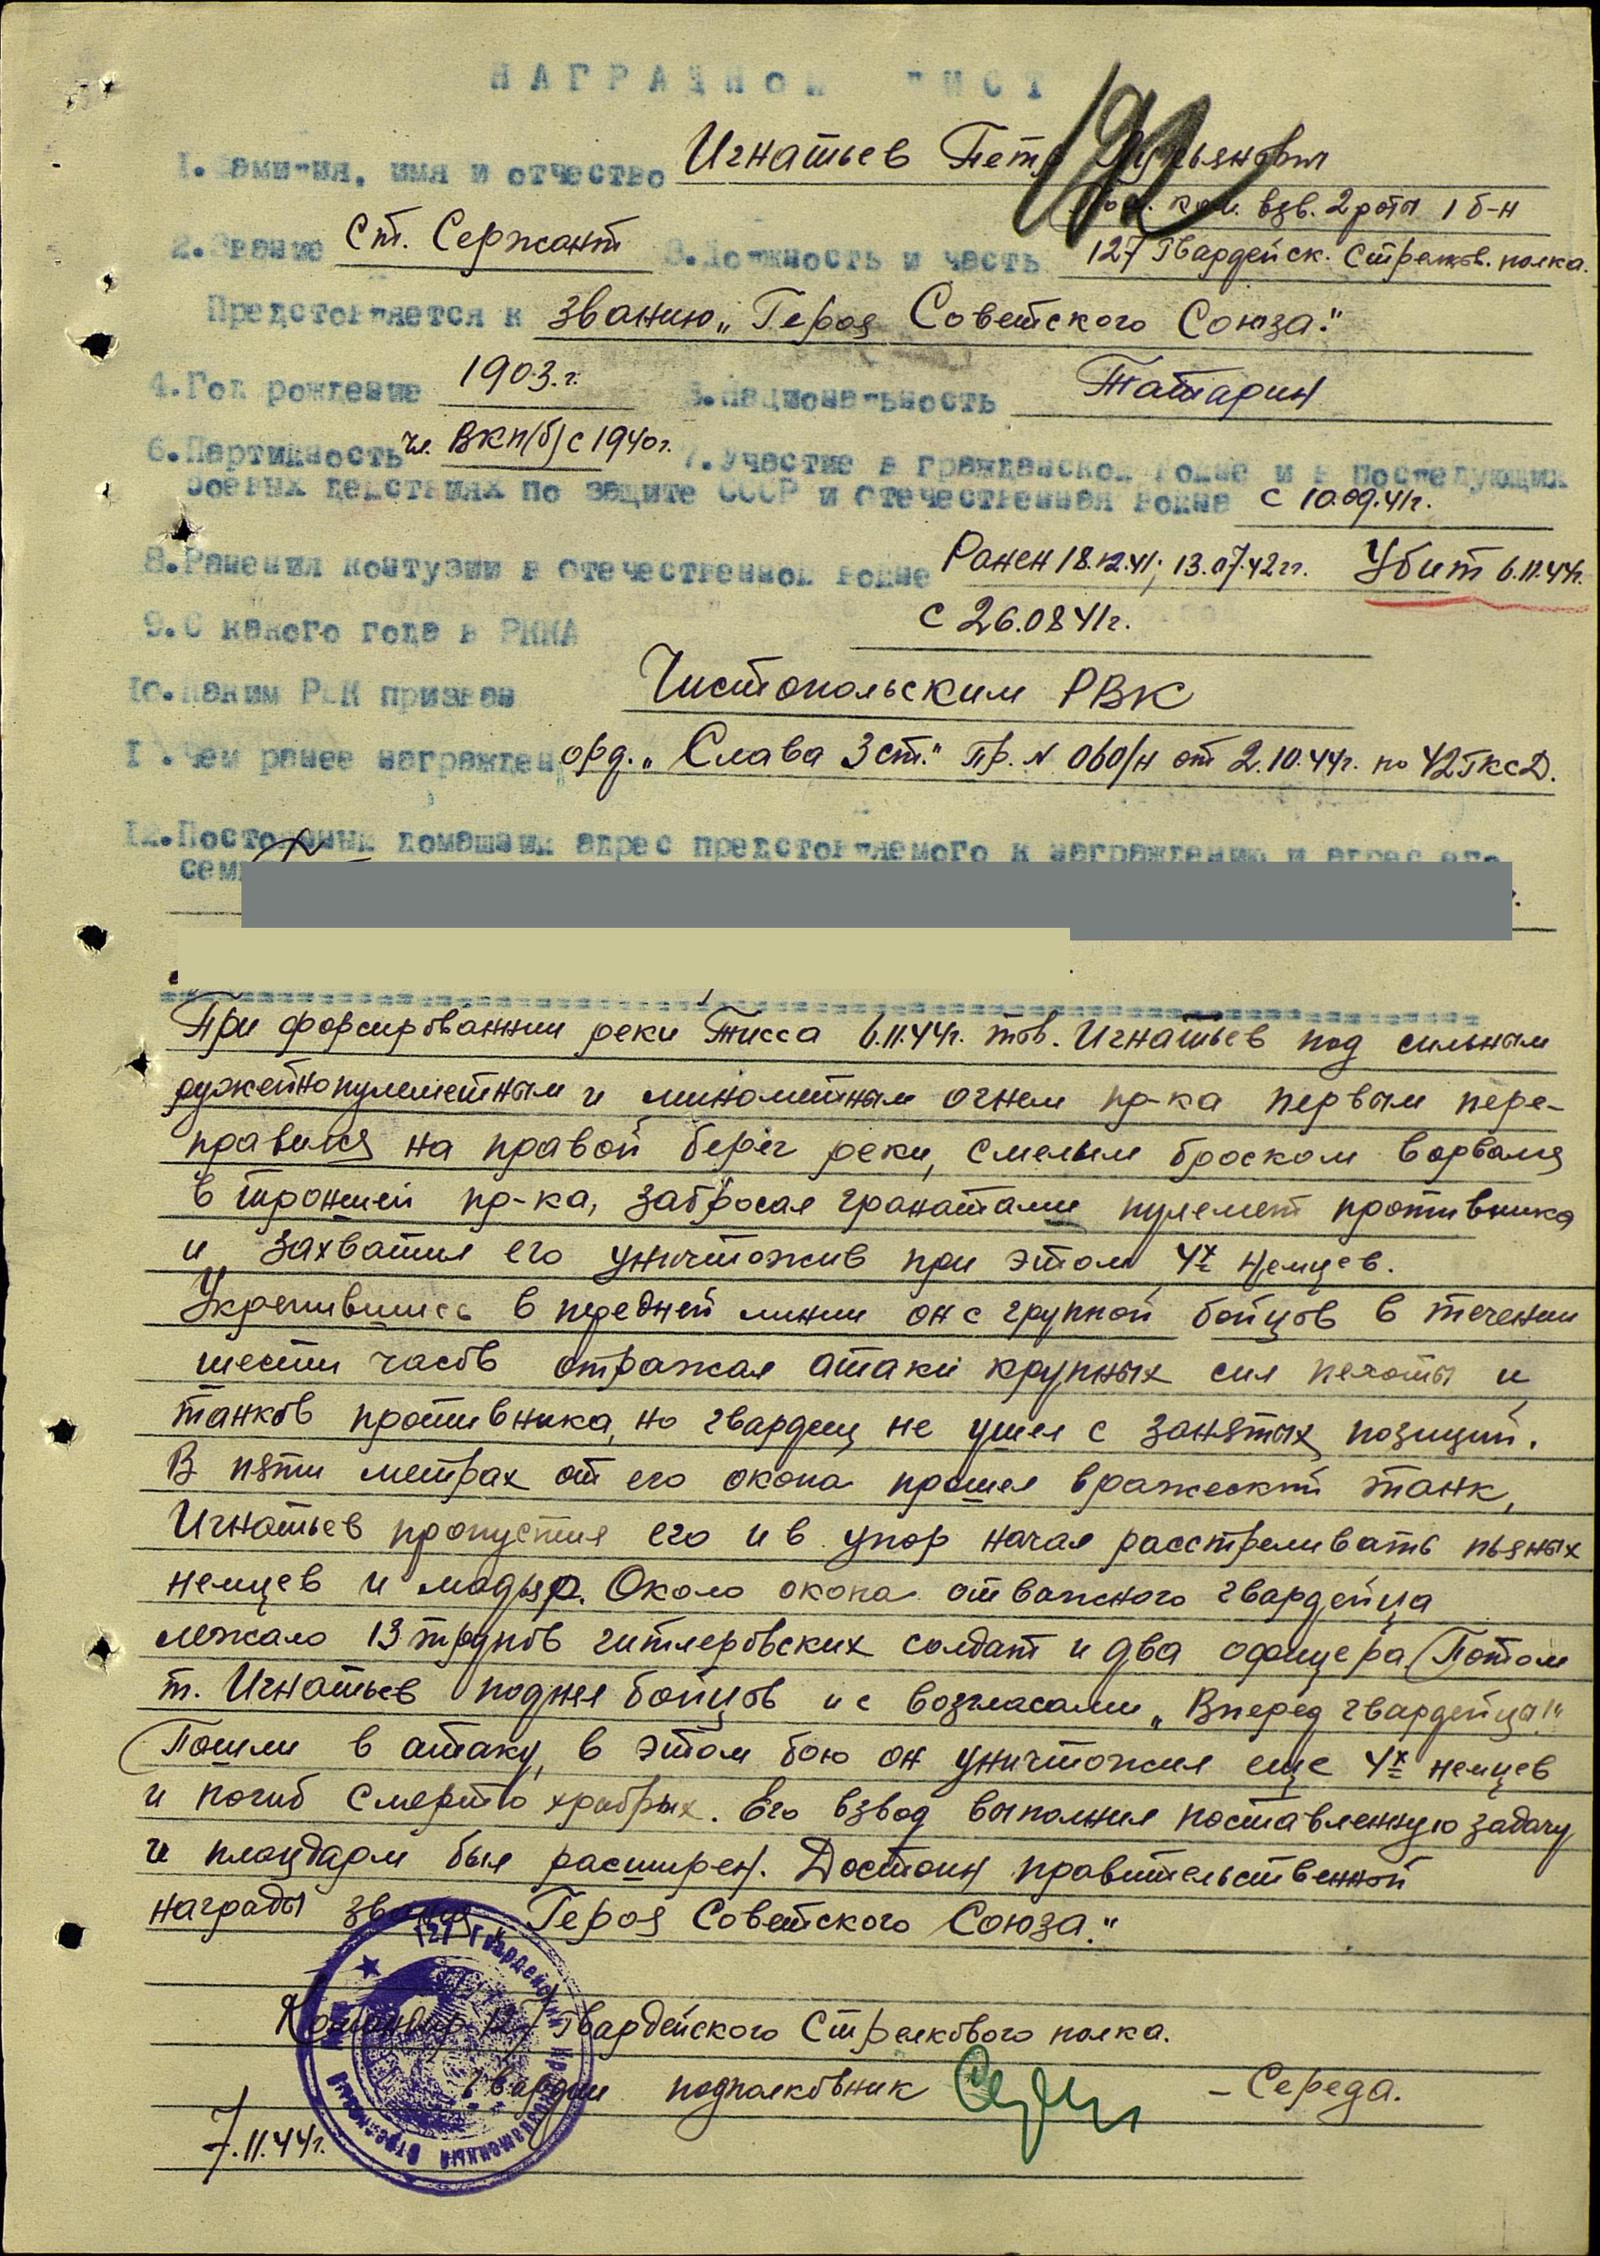 НАГРАДНОЙ ЛИСТ
1.Фамилия, имя и отчество Игнатьев Петр
пом. ком. взв. 2 роты 1 б-н
2.Звание Ст. Сержант 3.Должность и часть 127 Гвардейск. Стрелков. полка.
Представляется к званию „Героя Советского Союза."
4.Год рождение 1903.г. 5.Национальность Татарин
6.Партийность чл. ВКП(б) с 1940г. 7.Участие в гражданской войне и в последующих
боевых действиях по защите СССР и отечественная война с 10.09.41г.
8.Ранения контузии в отечественной войне Ранен 18.12.41; 13.07.42гг. Убит 6.11.44г.
9.С какого года в РККА с 26.08 41г.
10.Каким РВК призван Чистопольским РВК
11.Чем ранее награжден орд. „Слава 3 ст." Пр. N 060/н от 2.10.44г. по 42 ГКСД.
12.Постоянный домашний адрес представляемого к награждению и адрес его
При форсированнии реки Тисса 6.11.44г. тов. Игнатьев под сильным
ружейнопулеметным и минометным огнем пр-ка первым пере-
правился на правой берег реки, смелым броском ворвался
в траншей пр-ка, забросал гранатами пулемет противника
и захватил его уничтожив при этом 4х немцев.
Укрепившись в передней линии он с группой бойцов в течении
шести часов отражал атаки крупных сил пехоты и
танков противника, но гвардеец не ушел с занятых позиций.
В пяти метрах от его окопа прошел вражеский танк,
Игнатьев пропустил его и в упор начал расстреливать пьяных
немцев и мадьяр. Около окопа отважного гвардейца
лежало 13 трупов гитлеровских солдат и два офицера Потом
т. Игнатьев поднял бойцов и с возгласами „Вперед гвардейцы!"
Пошли в атаку, в этом бою он уничтожил еще 4х немцев
и погиб смертю храбрых. Его взвод выполнил поставленную задачу
и плацдарм был расширен. Достоин правительственной
награды звания „Героя Советского Союза."
Командир 127 Гвардейского Стрелкового полка.
гвардии подполковник – Середа.
7.11.44г.